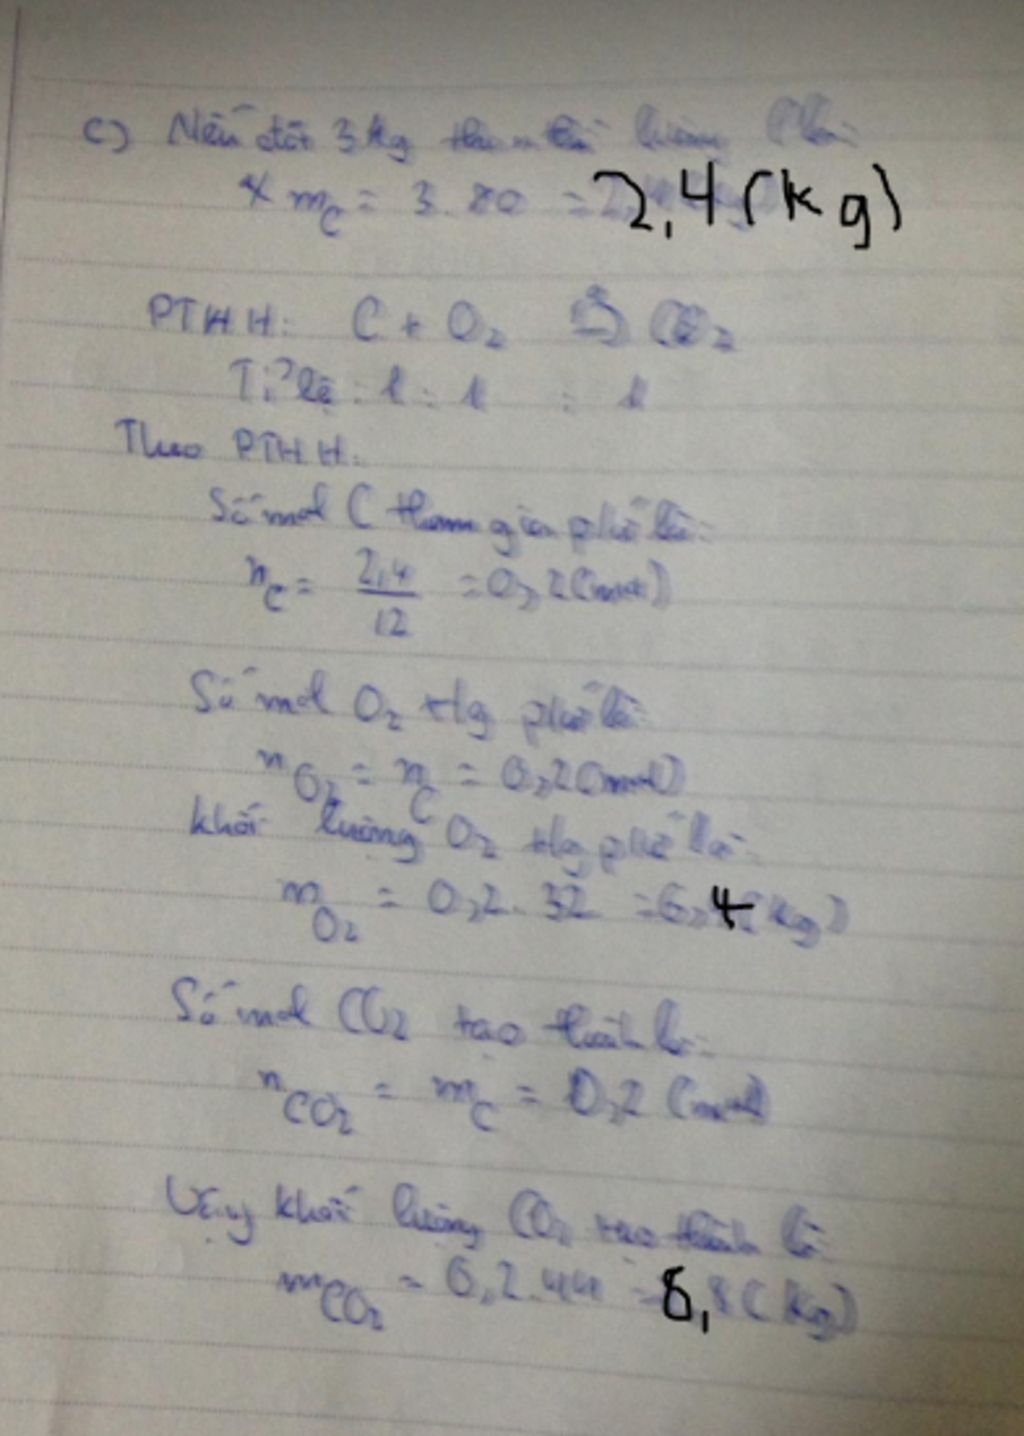 c) Nếu đốt 3kg than thì lượng
* mC = 3.80 = 2,4 (kg)
PTHH: C + O2 → CO2
Tỉ lệ: 1 : 1 : 1
Theo PTHH:
Số mol C tham gia pứ là:
nC = 2,4/12 = 0,2 (mol)
Số mol O2 tg pứ là:
nO2 = nC = 0,2 (mol)
Khối lượng O2 tg pứ là:
mO2 = 0,2.32 = 6,4 (kg)
Số mol CO2 tạo thành là:
nCO2 = mC = 0,2 (mol)
Vậy khối lượng CO2 tạo thành là
mCO2 = 0,2.44 = 8,8 (kg)